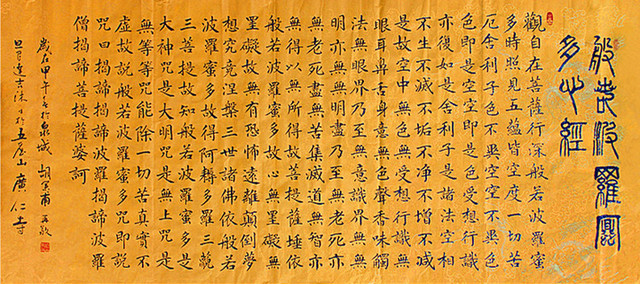 般若波羅蜜
多心經
觀自在菩薩行深般若波羅蜜
多時照見五蘊皆空度一切苦
厄舍利子色不異空空不異色
色即是空空即是色受想行識
亦復如是舍利子是諸法空相
不生不滅不垢不净不增不減
是故空中無色無受想行識無
眼耳鼻舌身意無色聲香味觸
法無眼界乃至無意識界無無
明亦無無明盡乃至無老死亦
無老死盡無苦集滅道無智亦
無得以無所得故菩提薩埵依
般若波羅蜜多故心無罣礙無
罣礙故無有恐怖遠離顛倒夢
想究竟涅槃三世諸佛依般若
波羅蜜多故得阿耨多羅三藐
三菩提故知般若波羅蜜多是
大神咒是大明咒是無上咒是
無等等咒能除一切苦真實不
虛故說般若波羅蜜多咒即說
咒曰揭諦揭諦波羅揭諦波羅
僧揭諦菩提薩婆訶
歲在甲午於泉城
於五台山廣仁寺